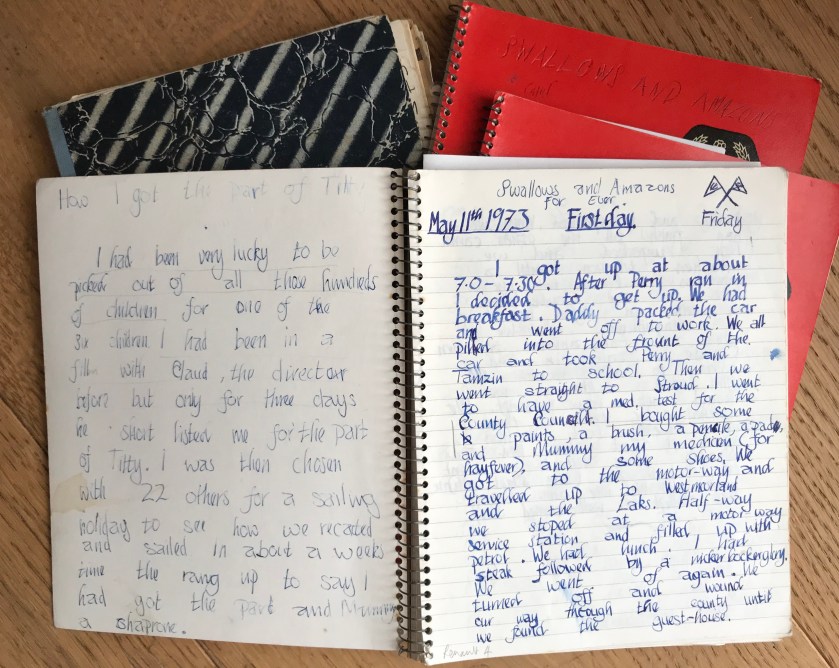 SWALLOWS AND AMAZONS
How I got the part of Titty
I had been very lucky to be
picked out of all those hundreds
of children for one of the
six children I had been in a
film with Claud, the director
before but only for three days
he short listed me for the part
of Titty. I was then chosen
with 22 others for a sailing
holiday to see how we reacted
and sailed in about a weeks
time the rang up to say I
had got the part and Mummy
a shaprone.
Swallows and Amazons
For Ever.
May 11th 1973 First day. Friday
I got up at about
7.0 - 7.30. After Perry ran in
I decided to get up. We had
breakfast. Daddy packed the car
and went off to work. We all
pilled into the frount of the
car and took Perry and
Tamzin to school. Then we
went straight to Stroud. I went
to have a med, test for the
County Council. I bought some
paints, a brush, a pencile, a pade,
and Mummy my medicen (for
hayfever), and some shoes. We
got to the motor-way and
travelled up to Westmorland
and the Laks. Half-way
we stoped at a motor way
service station and filled up with
petrol. We had lunch. I had
steak followed by a nickerbockergtory.
We went of again. We
turned off and wound
our way through the county until
we found the guest-house.